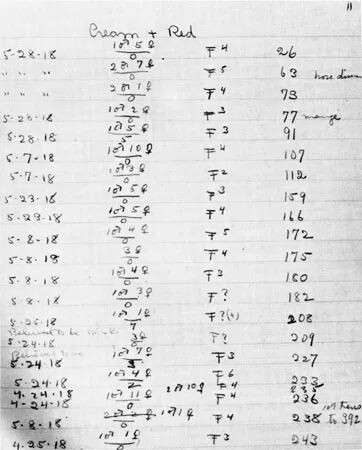 11
Cream + Red
5-28-18 1♂ 5♀ / 0 F4 26
" " " 2♂ 7♀ / 0 F5 63
" " " 2♂ 1♀ / 0 F4 73
5-28-18 1♂ 2♀ / 0 F3 77 mange
5-28-18 1♂ 5♀ F3 91
5-7-18 1♂ 10♀ / 0 F4 107
5-7-18 1♂ 3♀ / 0 F2 112
5-23-18 1♂ 5♀ / 0 F3 159
5-23-18 1♂ 5♀ / 0 F4 166
5-8-18 1♂ 4♀ / 0 F5 172
5-8-18 3♀ / 0 F4 175
5-8-18 1♂ 4♀ / 0 F3 180
5-8-18 1♂ 3♀ / 0 F? 182
5-25-18 1♂ 1♀ F?(4) 208
5-24-18 3♀ / 0 F? 209
5-24-18 1♂ 7♀ / 3 F3 227
5-24-18 1♂ 4♀ / 2 F6 233
4-24-18 2♂ 10♀ F4
4-24-18 1♂ 11♀ / 0 F4 236
5-8-18 1♂ 1♀ F4 238 to 392
4-25-18 1♂ 1♀ / 0 F3 243